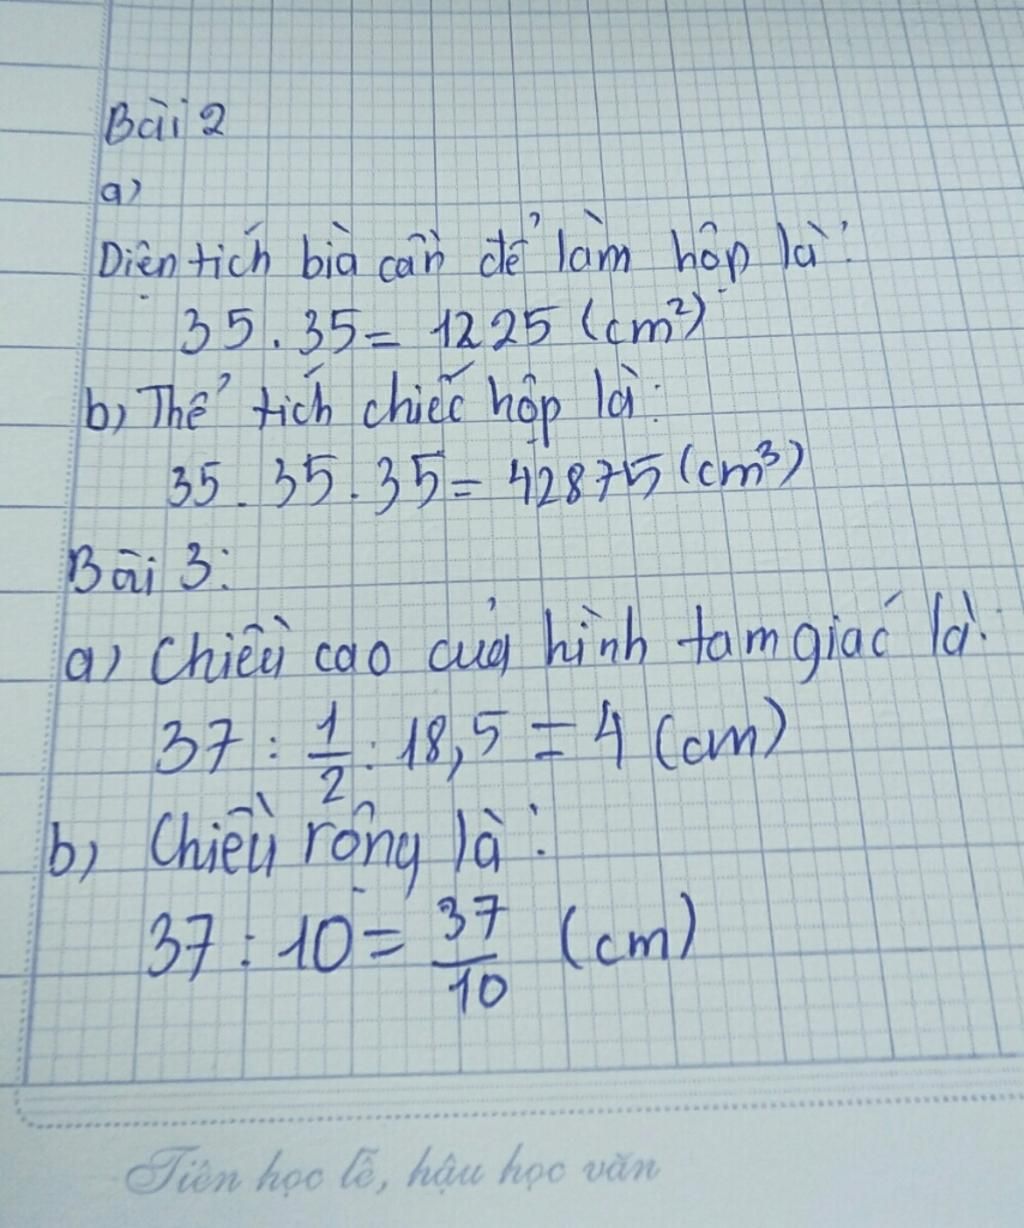 Bài 2
a)
Diện tích bìa cần để làm hộp là:
35.35= 1225 (cm²)
b) Thể tích chiếc hộp là:
35.35.35= 42875 (cm³)
Bài 3:
a) Chiều cao của hình tam giác là:
37 : 1/2 : 18,5 = 4 (cm)
b) Chiều rộng là:
37 : 10 = 37/10 (cm)
Tiên học lễ, hậu học văn